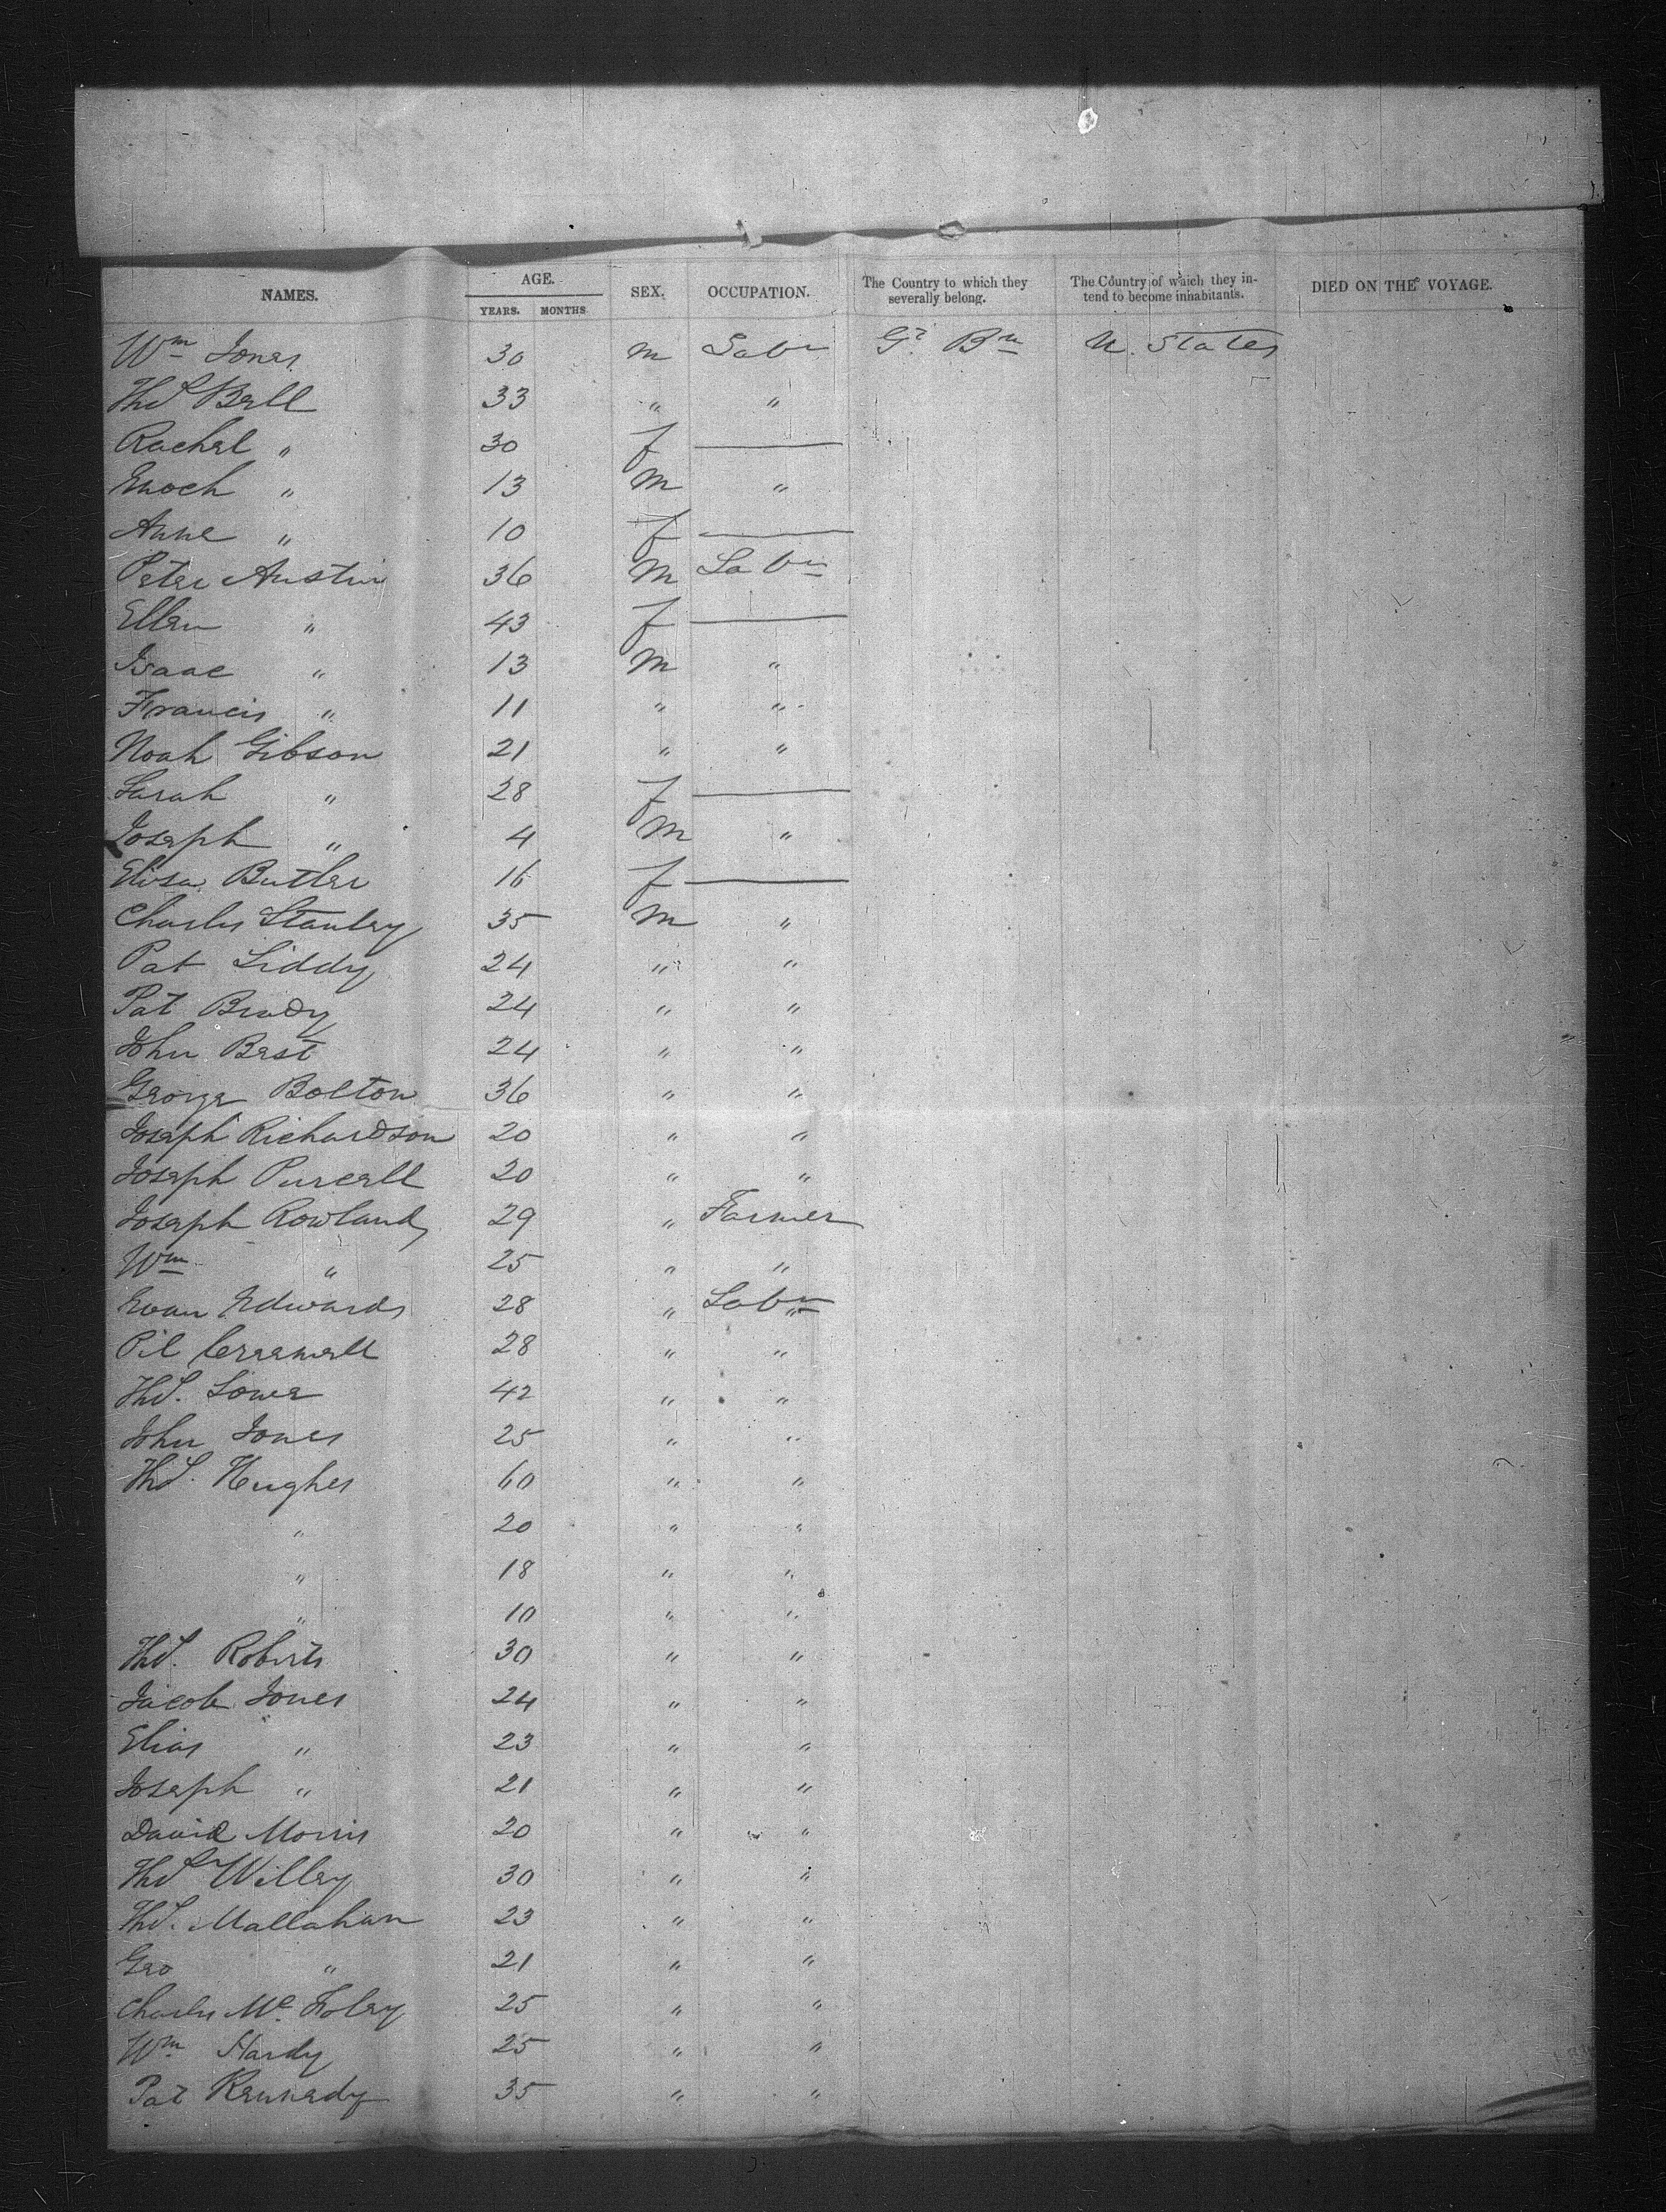 NAMES. AGE. YEARS. MONTHS SEX. OCCUPATION. The Country to which they severally belong. The Country of which they intend to become inhabitants. DIED ON THE VOYAGE.
Wm Jones 30 m Labr Gt Bn U. States
Thos Bell 33 " "
Rachel " 30 f —
Enoch " 13 m "
Anne " 10 f —
Peter Austin 36 m Labr
Ellen " 43 f —
Isaac " 13 m "
Francis " 11 " "
Noah Gibson 21 " "
Sarah " 28 f —
Joseph " 4 m "
Eliza Butler 16 f —
Charles Stanley 35 m "
Pat Liddy 24 " "
Pat Brady 24 " "
John Best 24 " "
George Bolton 36 " "
Joseph Richardson 20 " "
Joseph Purcell 20 " "
Joseph Rowland 29 " Farmer
Wm " 25 " "
Evan Edwards 28 " Labr
28 " "
Thos. Lowe 42 " "
John Jones 25 " "
Thos. Hughes 60 " "
" 20 " "
" 18 " "
" 10 " "
Thos. Roberts 30 " "
Jacob Jones 24 " "
Elias " 23 " "
Joseph " 21 " "
David Morris 20 " "
Thos Willey 30 " "
Thos. Mallahan 23 " "
Geo " 21 " "
Charles Mc. Foley 25 " "
Wm Hardy 25 " "
Pat Kennedy 35 " "